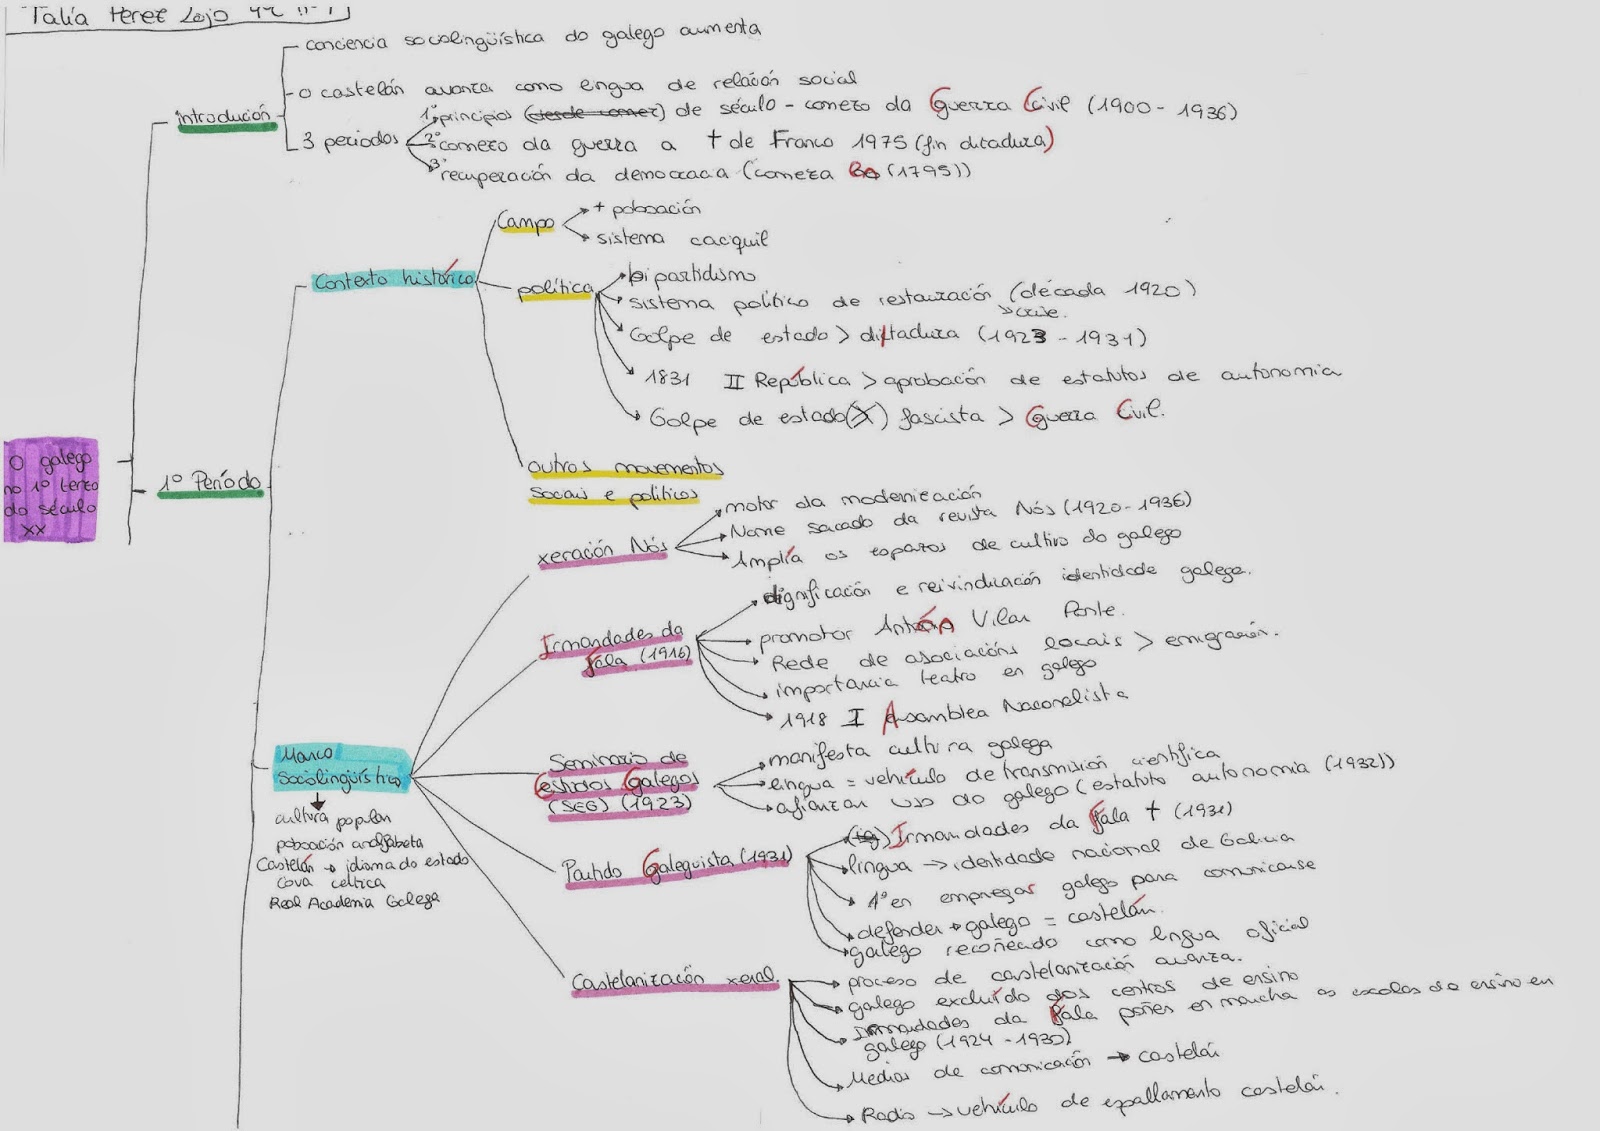 Talía Pérez Lojo
conciencia sociolingüística do galego aumenta
o castelán avanza como lingua de relación social
Introdución
3 períodos
1º principios (desde comez) de século - comezo da Guerra Civil (1900 - 1936)
2º comezo da guerra a † de Franco 1975 (fin ditadura)
3º recuperación da democracia (comeza (1795))
O galego
no 1º terzo
do século
XX
1º Período
Contexto histórico
Campo
+ poboación
sistema caciquil
política
bipartidismo
sistema político de restauración (década 1920)
> crise.
Golpe de estado > ditadura (1923 - 1931)
1831 II República > aprobación de estatutos de autonomía
Golpe de estado (X) fascista > Guerra Civil.
outros movementos
sociais e políticos
Marco
Sociolingüístico
cultura popular
poboación analfabeta
Castelán → idioma do estado
Cova céltica
Real Academia Galega
xeración Nós
motor da modernización
Nome sacado da revista Nós (1920 - 1936)
Amplía os espazos de cultivo do galego
Irmandades da
Fala (1916)
dignificación e reivindicación identidade galega.
promotor Antón Vilar Ponte.
Rede de asociacións locais > emigración.
importancia teatro en galego
1918 I Asamblea Nacionalista
Seminario de
Estudos Galegos
(SEG) (1923)
manifesta cultura galega
lingua = vehículo de transmisión científica
afianzan uso do galego (estatuto autonomía (1932))
Partido Galeguista (1931)
Irmandades da Fala † (1931)
lingua → identidade nacional de Galicia
1º en empregar galego para comunicarse
defender → galego = castelán.
galego recoñecido como lingua oficial
Castelanización xeral.
proceso de castelanización avanza.
galego excluído dos centros de ensino
Irmandades da Fala poñen en marcha as escolas do ensino en
galego (1924 - 1930)
Medios de comunicación → castelán
Radio → vehículo de espallamento castelán.